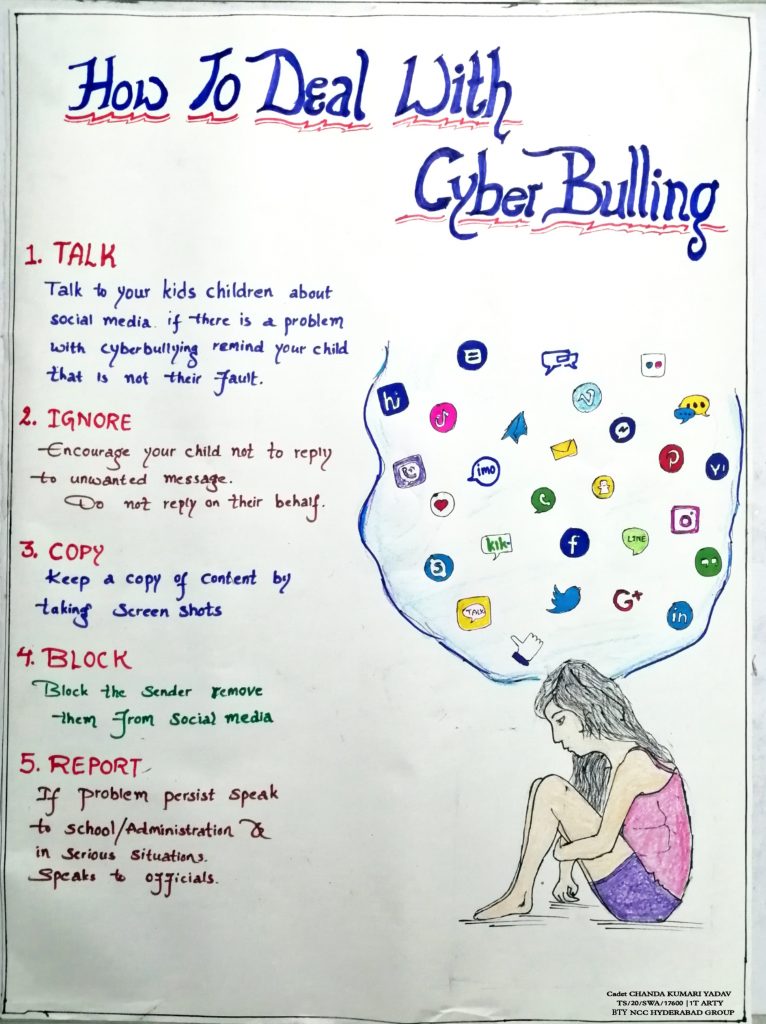 How To Deal With
Cyber Bulling
1. TALK
Talk to your kids children about
social media. if there is a problem
with cyberbullying remind your child
that is not their fault.
2. IGNORE
Encourage your child not to reply
to unwanted message.
Do not reply on their behalf.
3. COPY
Keep a copy of content by
taking screen shots
4. BLOCK
Block the sender remove
them from social media
5. REPORT
If problem persist speak
to school/Administration &
in serious situations.
Speaks to officials.
hi
imo
P
Y!
kik
f
LINE
S
TALK
G+
in
Cadet CHANDA KUMARI YADAV
TS/20/SWA/17600 | 1T ARTY
BTY NCC HYDERABAD GROUP